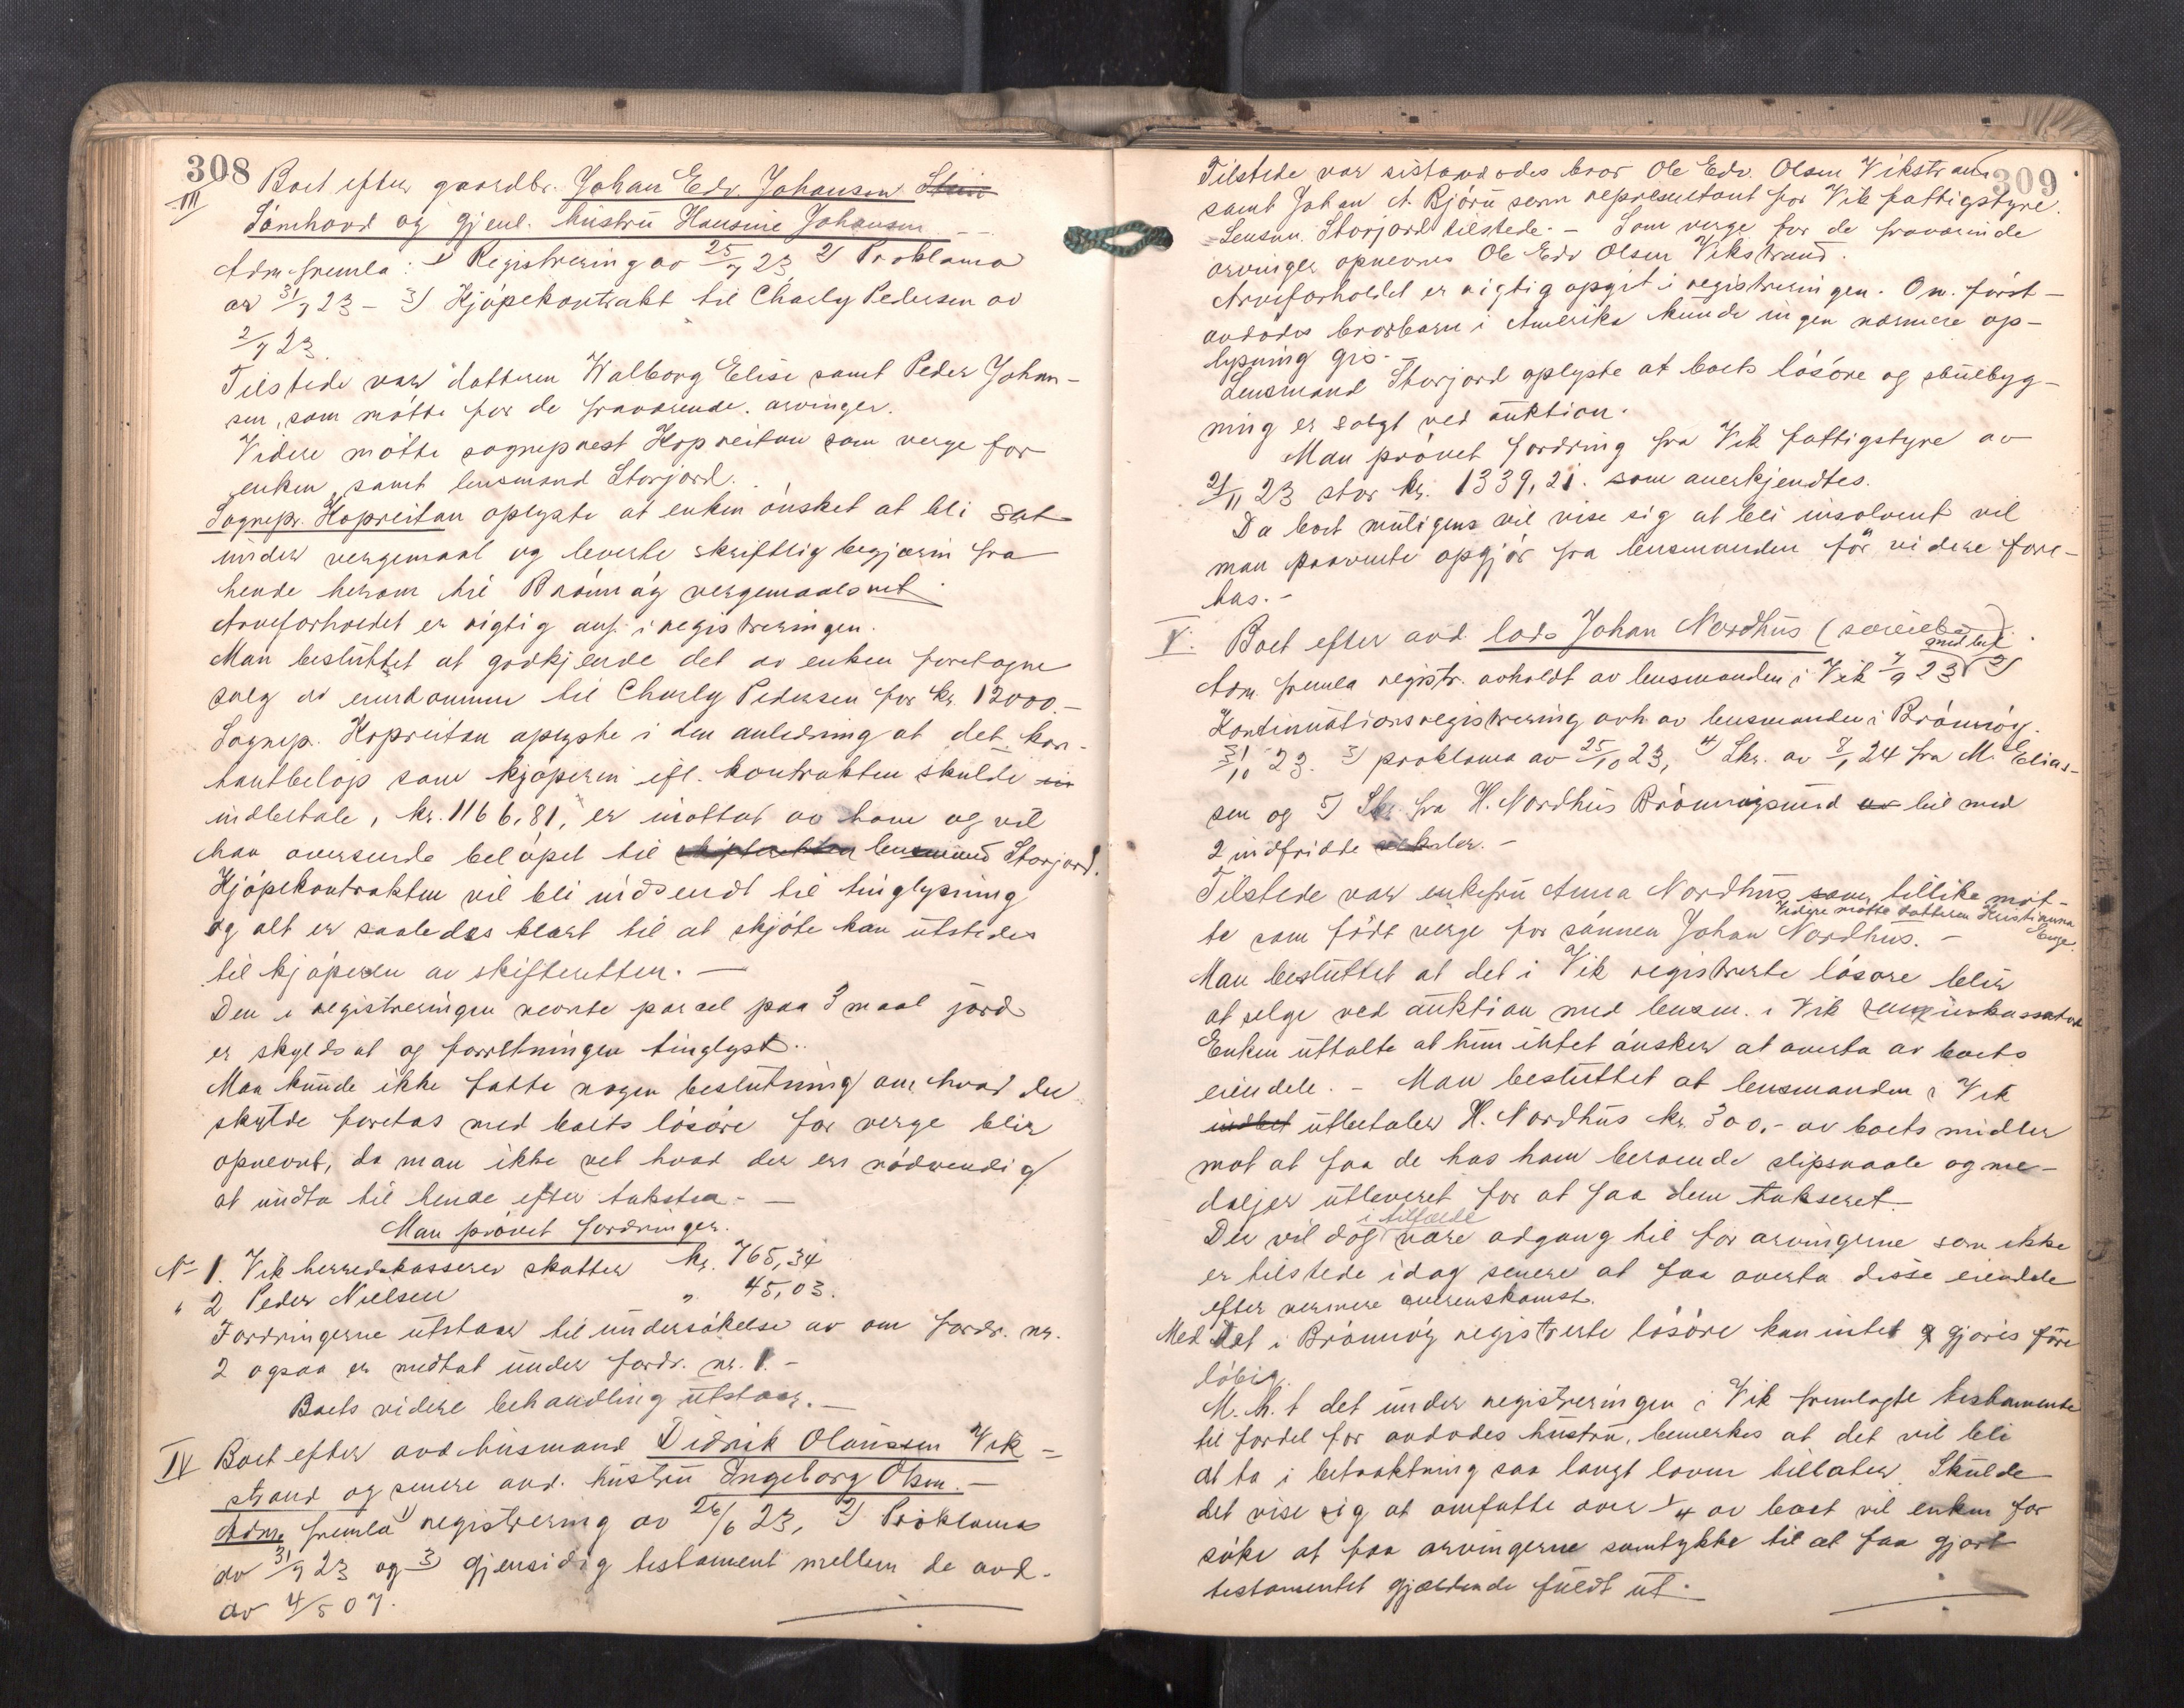 308
III Boet efter gaardbr. Johan Edv. Johansen Stein
Sömhovd og gjenl. hustru Hansine Johansen
Adm. fremla: 1) Registrering av 25/7 23 2) Proklama
av 31/7 23 – 3) Kjöpekontrakt til Charly Pedersen av
2/7 23.
Tilstede var datteren Walborg Elise samt Peder Johan-
sen, som mötte for de fraværende arvinger.
Videre mötte sogneprest Kopreitan som verge for
enken, samt lensmand Storjord.
Sognepr. Kopreitan oplyste at enken önsket at bli sat
under vergemaal og leverte skriftlig begjæring fra
hende herom til Brönnöy vergemaalsret.
Arveforholdet er rigtig anf. i registreringen.
Man besluttet at godkjende det av enken foretagne
salg av eiendommen til Charly Pedersen for kr. 12000.–
Sognep. Kopreitan oplyste i den anledning at det kon-
tantbelöp som kjöperen ifl. kontrakten skulde in
indbetale, kr. 1166,81, er mottat av ham og vil
han oversende belöpet til skifteretten lensmand Storjord.
Kjöpekontrakten vil bli indsendt til tinglysning
og alt er saaledes klart til at skjöte kan utstedes
til kjöperen av skifteretten. –
Den i registreringen nevnte parsel paa 3 maal jord
er skyldsat og forretningen tinglyst.
Man kunde ikke fatte nogen beslutning om hvad der
skulde foretas med boets lösöre för verge blir
opnevnt, da man ikke vet hvad der er nödvendig
at undta til hende efter taksten. –
Man prövet fordringer.
No 1. Vik herredskasserer skatter kr. 765,34
" 2 Peder Nielsen " 45,03.
Fordringerne utstaar til undersökelse av om fordr. nr.
2 ogsaa er medtat under fordr. nr. 1. –
Boets videre behandling utstaar. –
IV Boet efter avd husmand Didrik Olaussen Vik-
strand og senere avd. hustru Ingeborg Olsen. –
Adm. fremla 1) registrering av 26/6 23, 2) Proklama
av 31/7 23 og 3) gjensidig testament mellem de avd.
av 4/5 07.
309
Tilstede var sistavdödes bror Ole Edv. Olsen Vikstrand
samt Johan A. Björu som representant for Vik fattigstyre.
Lensm. Storjord tilstede. – Som verge for de fraværende
arvinger opnevnes Ole Edv Olsen Vikstrand.
Arveforholdet er rigtig opgit i registreringen. Om först-
avdödes brorbarn i Amerika kunde ingen nærmere op-
lysning gis. –
Lensmand Storjord oplyste at boets lösöre og stuebyg-
ning er solgt ved auktion.
Man prövet fordring fra Vik fattigstyre av
21/11 23 stor kr. 1339,21. som anerkjendtes.
Da boet muligens vil vise sig at bli insolvent vil
man paavente opgjör fra lensmanden för videre fore-
tas. –
V. Boet efter avd. lods Johan Nordhus (særeiebo).
Adm. fremla registr. avholdt av lensmanden i Vik 7/9 23 med bil. 2)
Kontinuationsregistrering avh. av lensmanden i Brönnöy
31/10 23. 3) proklama av 25/10 23, 4) Skr. av 8/1 24 fra M. Elias-
sen og 5) Skr. fra H. Nordhus Brönnöysund av bil med
2 indfridde veksler. –
Tilstede var enkefru Anna Nordhus som tillike möt-
te som födt verge for sönnen Johan Nordhus. – Videre mötte datteren Kristianna Enge.
Man besluttet at det i Vik registrerte lösöre blir
at selge ved auktion med lensm. i Vik som inkassator
Enken uttalte at hun intet önsker at overta av boets
eiendele. – Man besluttet at lensmanden i Vik
indbet utbetaler H. Nordhus kr. 300.– av boets midler
mot at faa de hos ham beroende slipsnaale og me-
daljer utleveret for at faa dem takseret.
Der vil dog i tilfælde være adgang til for arvingerne som ikke
er tilstede idag senere at faa overta disse eiendele
efter nærmere overenskomst.
Med det i Brönnöy registrerte lösöre kan intet g gjöres fore
löbig.
M.h.t det under registreringen i Vik fremlagte testamente
til fordel for avdödes hustru, bemerkes at det vil bli
at ta i betraktning saa langt loven tillater. Skulde
det vise sig at omfatte over 1/4 av boet vil enken for
söke at faa arvingerne samtykke til at faa gjort
testamentet gjældende fuldt ut.